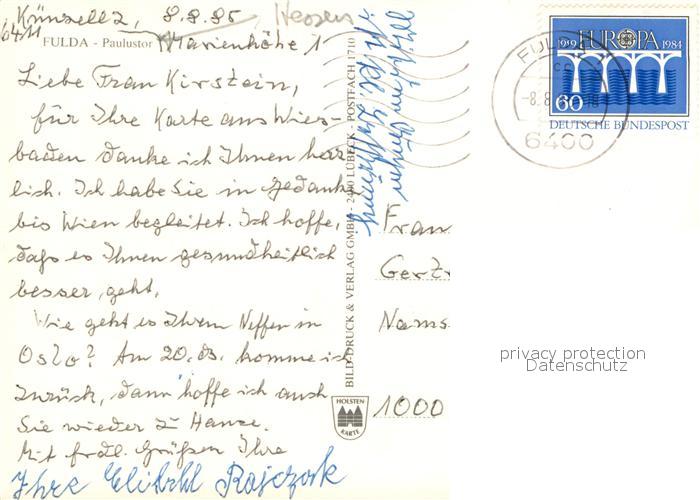 Künzell 2, 8.8.85 Hessen
6411
FULDA - Paulustor Marienhöhe 1
Liebe Frau Kirstein,
für Ihre Karte aus Wies-
baden danke ich Ihnen herz-
lich. Ich habe Sie in Gedanken
bis Wien begleitet. Ich hoffe,
daß es Ihnen gesundheitlich
besser geht.
Wie geht es Ihrem Neffen in
Oslo? Am 20. ds. komme ich
zurück, dann hoffe ich auch
Sie wieder zu Hause.
Mit frdl. Grüßen Ihre
Ihre Rajczork
BILD-DRUCK & VERLAG GMBH - 2400 LÜBECK - POSTFACH 1710
HOLSTEN
KARTE
1919 EUROPA 1984
60
DEUTSCHE BUNDESPOST
FULD
cc
-8.8
6400
Frau
Gertr
Nams
1000
privacy protection
Datenschutz